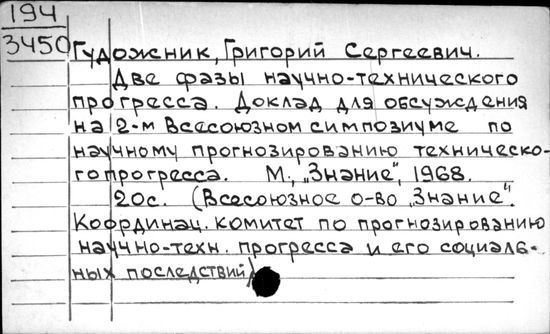 194
3450
Гудожник, Григорий Сергеевич.
Две фазы научно-технического
прогресса. Доклад для обсуждения
на 2-м Всесоюзном симпозиуме по
научному прогнозированию техническо-
го прогресса. М., „Знание", 1968.
20с. (Всесоюзное о-во „Знание".
Координац. комитет по прогнозированию
научно-техн. прогресса и его социаль-
ных последствий)